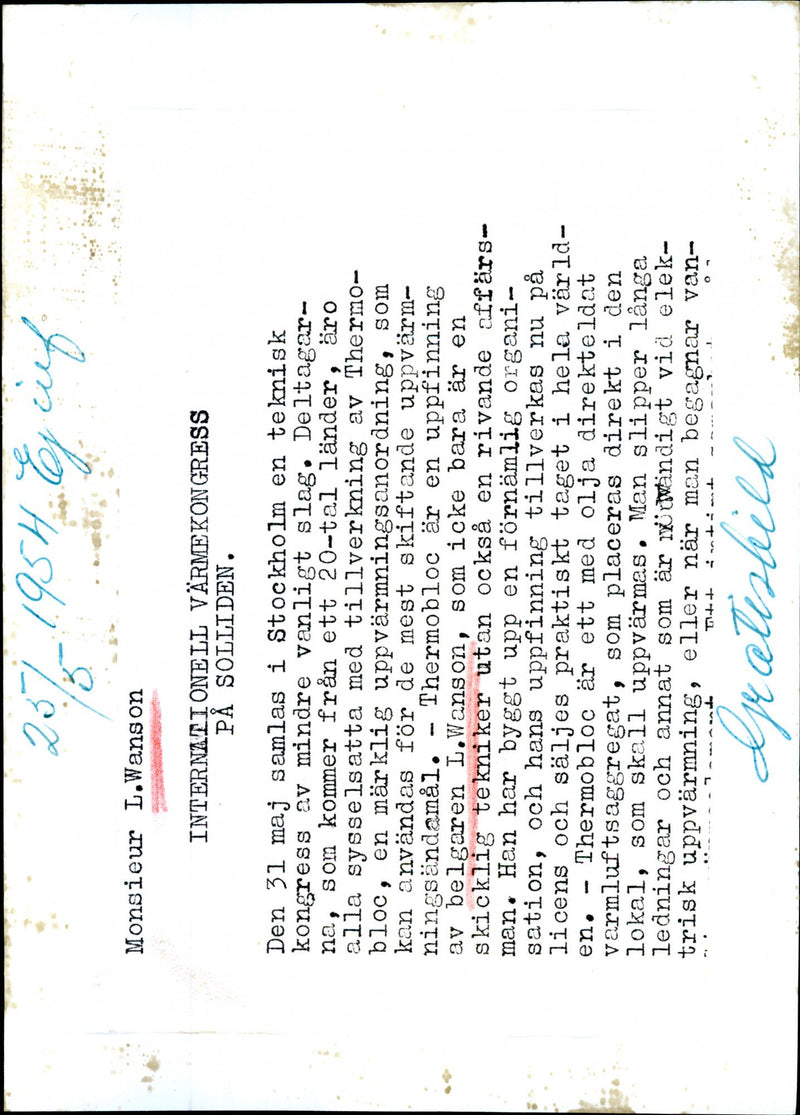 25/5-1954 Ej inf
Monsieur L.Wanson
INTERNATIONELL VÄRMEKONGRESS
PÅ SOLLIDEN.
Den 31 maj samlas i Stockholm en teknisk
kongress av mindre vanligt slag. Deltagar-
na, som kommer från ett 20-tal länder, äro
alla sysselsatta med tillverkning av Thermo-
bloc, en märklig uppvärmningsanordning, som
kan användas för de mest skiftande uppvärm-
ningsändamål. - Thermobloc är en uppfinning
av belgaren L.Wanson, som icke bara är en
skicklig tekniker utan också en rivande affärs-
man. Han har byggt upp en förnämlig organi-
sation, och hans uppfinning tillverkas nu på
licens och säljes praktiskt taget i hela värld-
en. - Thermobloc är ett med olja direkteldat
varmluftsaggregat, som placeras direkt i den
lokal, som skall uppvärmas. Man slipper långa
ledningar och annat som är nödvändigt vid elek-
trisk uppvärmning, eller när man begagnar van-
Gratisbild